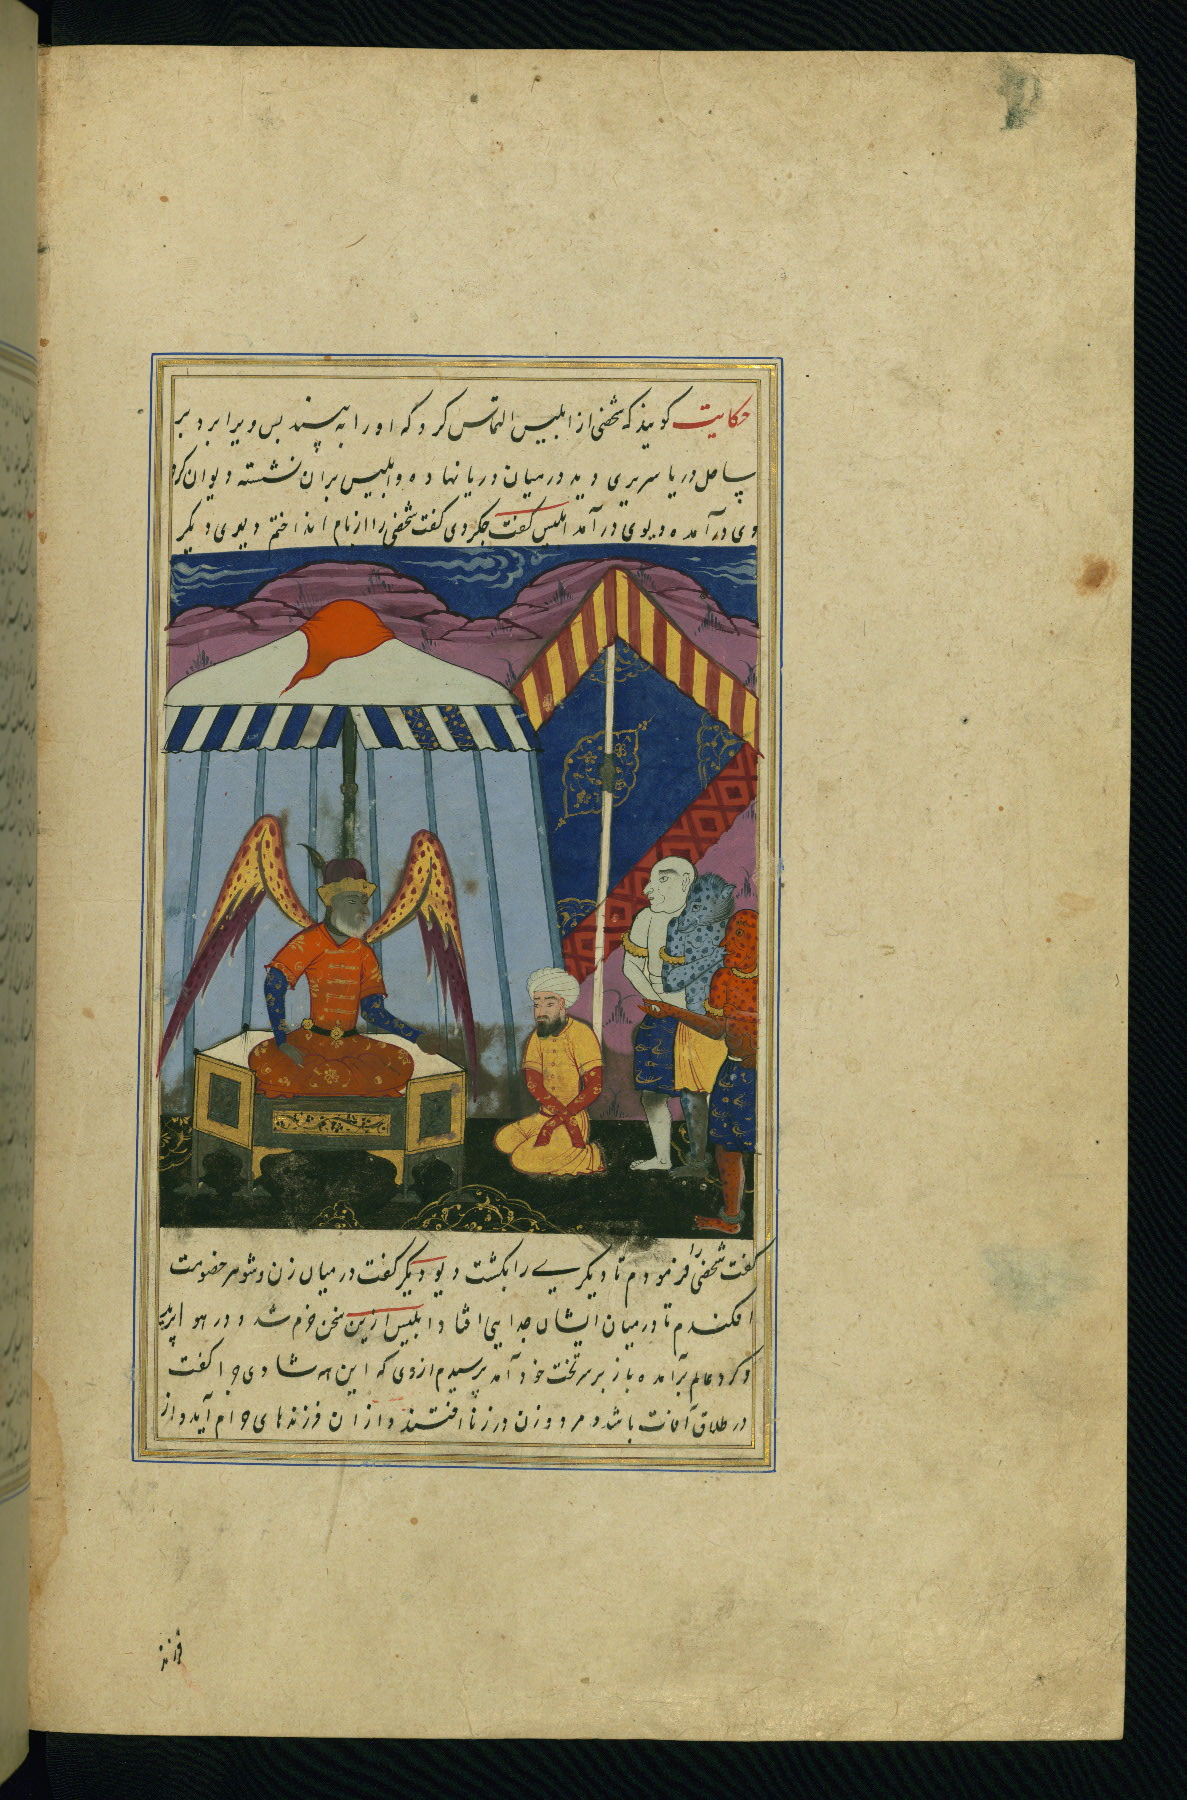 حکایت کویند که شخصی از ابلیس التماس کرد که او را به بیند بس ویرا برد بر
ساحل دریا سریری دید در میان دریا نهاده و ابلیس بران نشسته دیوان کرد
وی درآمده و دیوی درآمد ابلیس کفت چکردی کفت شخصی را از بام انداختم دیوی دیکر
کفت شخصی را فرمودم تا دیکریے را بکشت دیو دیکر کفت در میان زن و شوهر خصومت
افکندم تا در میان ایشان جدایی افتاد ابلیس ازین سخن خرم شد و در هوا پرید
و کرد عالم برآمده باز بر سر تخت خود آمد پرسیدم ازوی که این همه شادی چرا کفت
در طلاق آفات باشد و مرد و زن در زنا افتند و از ان فرزندهای حرام آید و از
فرزند